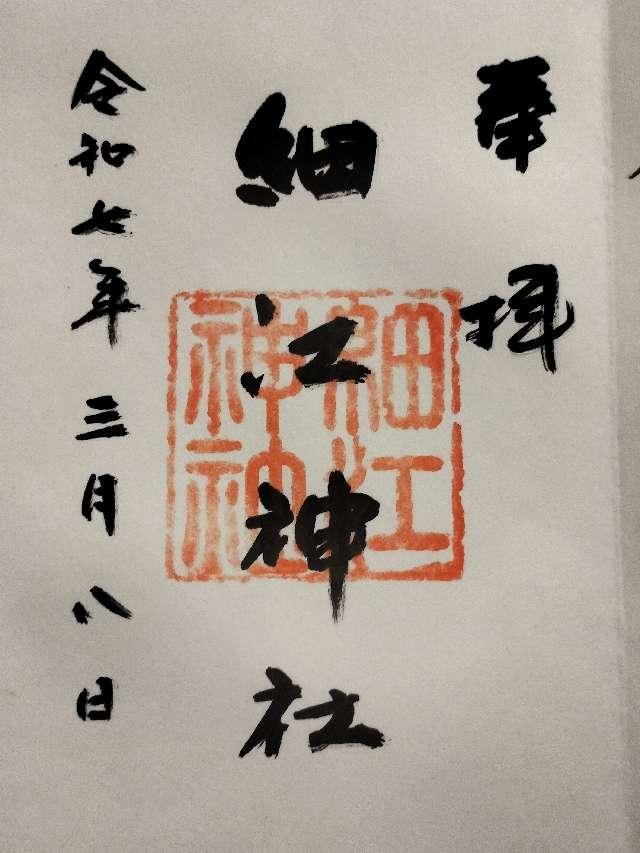 奉拝
細江神社
細江神社
令和七年三月八日